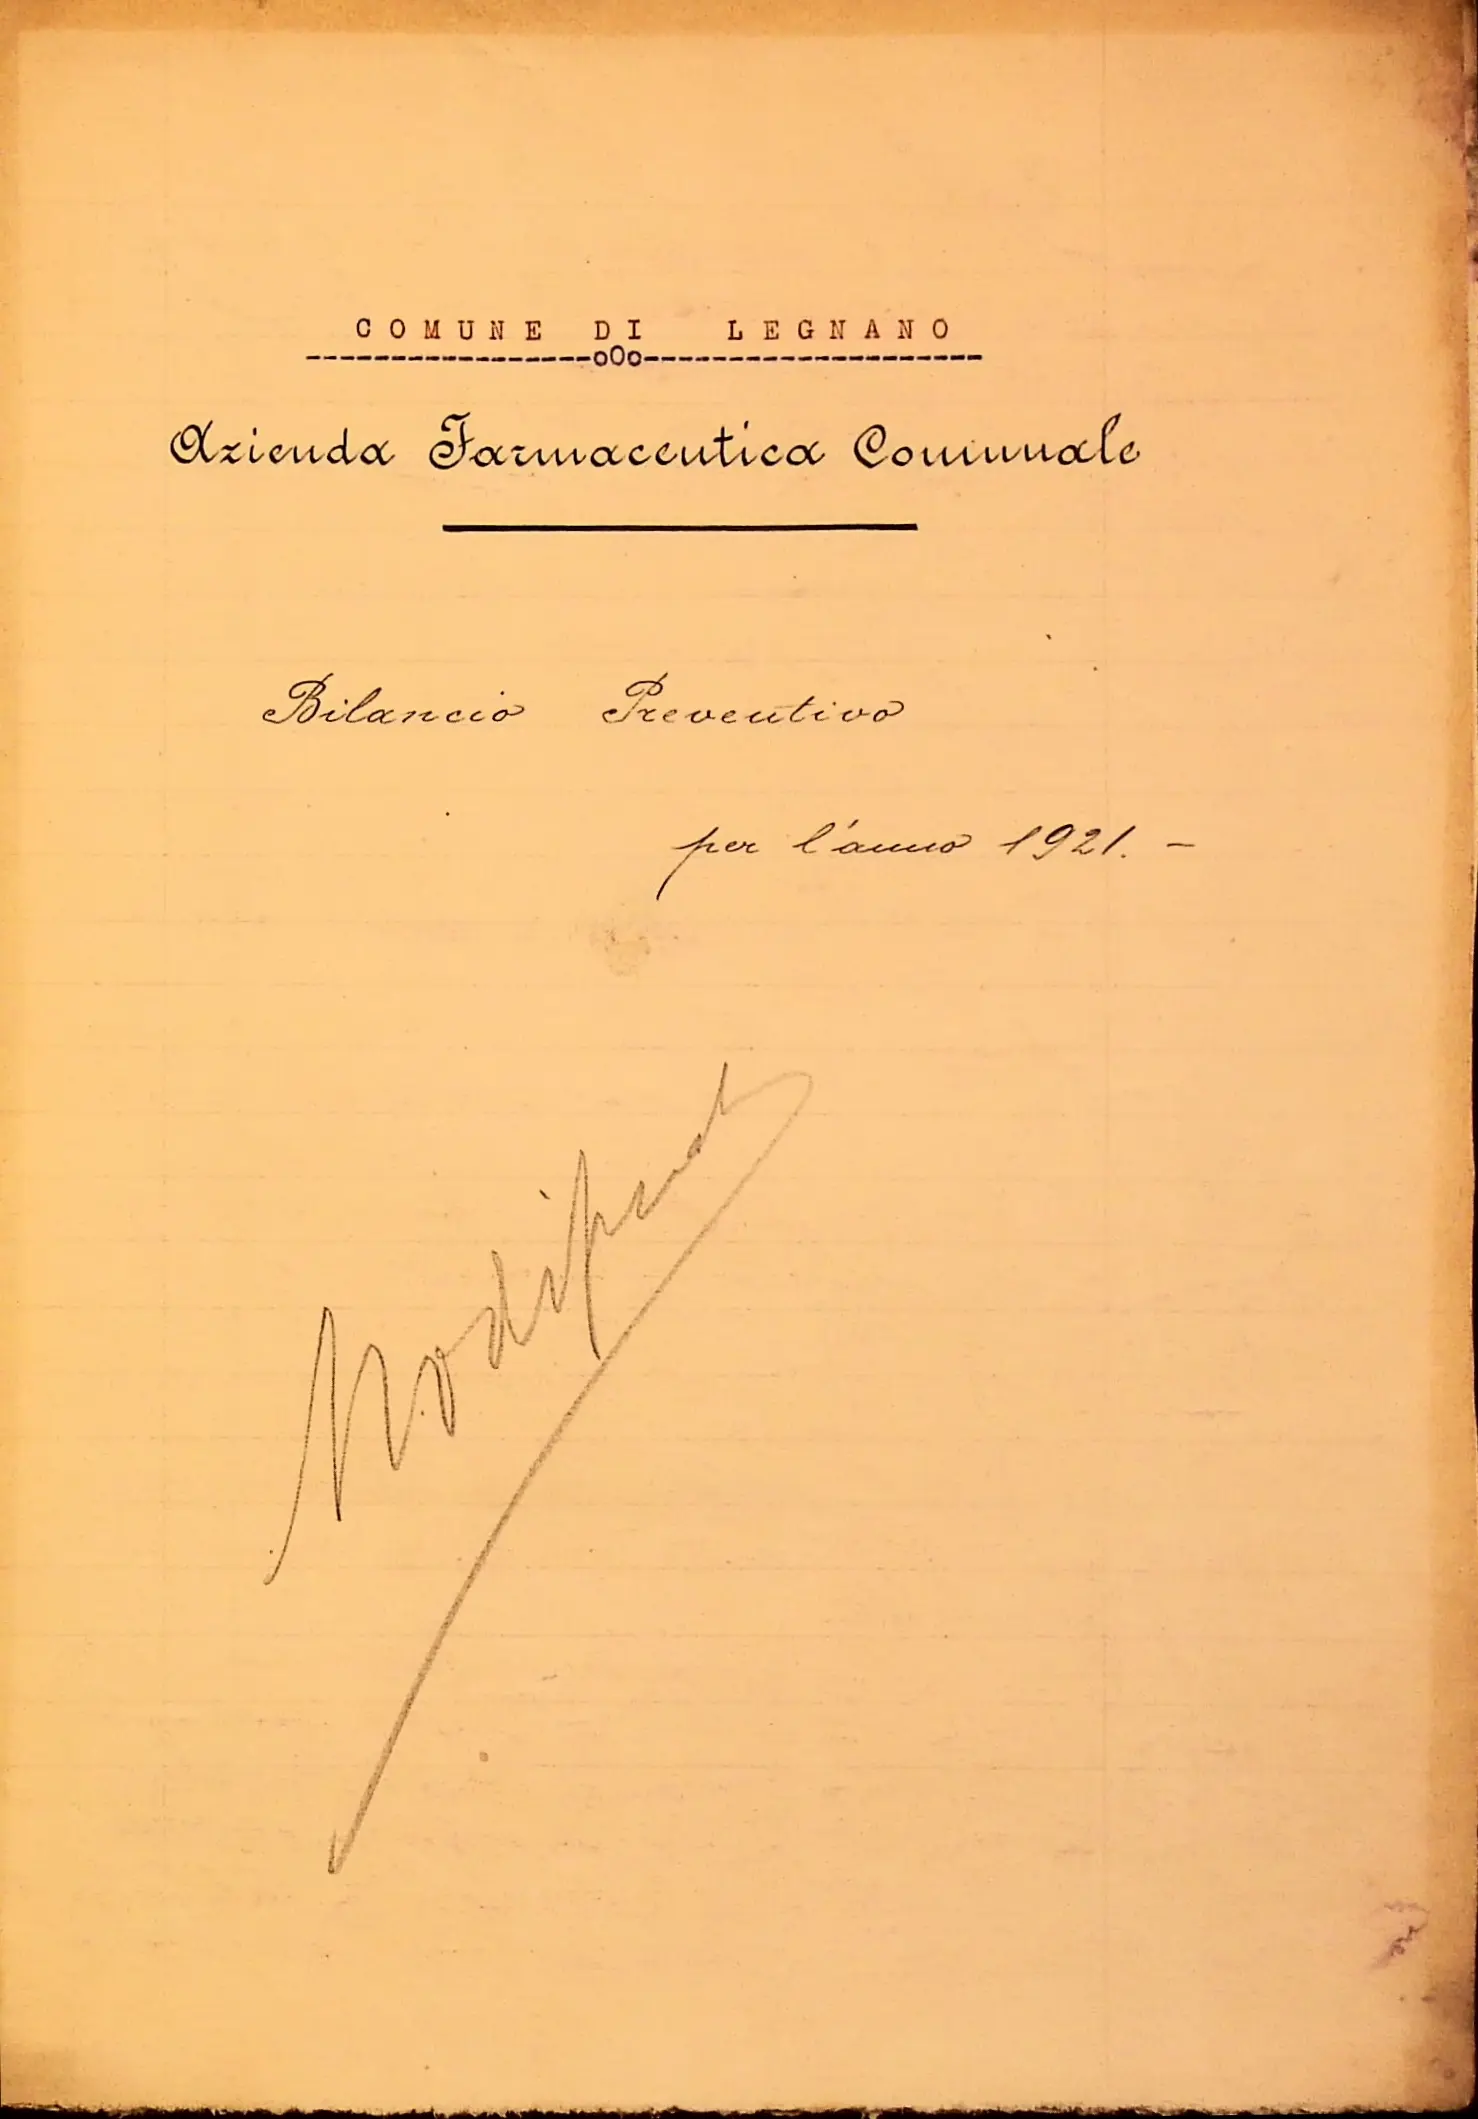 COMUNE DI LEGNANO
-----------------oOo--------------------
Azienda Farmaceutica Comunale
Bilancio Preventivo
per l'anno 1921. -